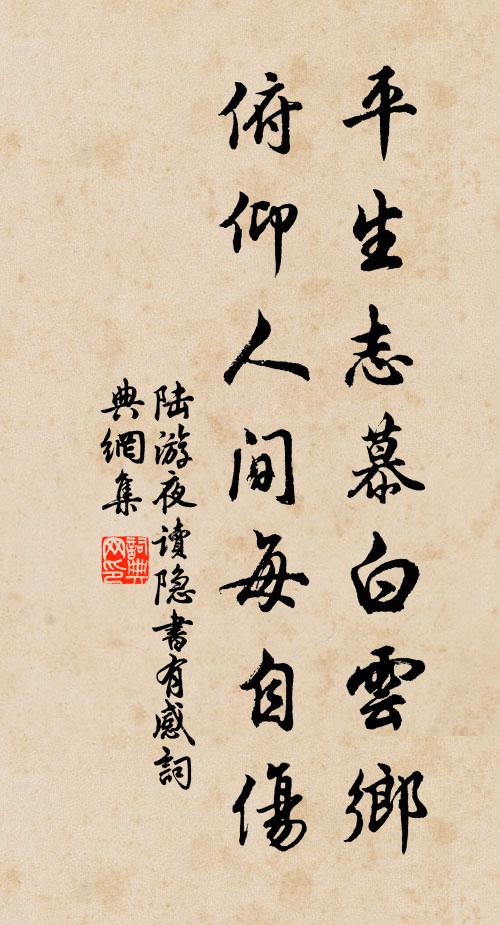 平生志慕白雲鄉
俯仰人间每自傷
陆游夜读隐書有感詞
典網集
詞典
网印